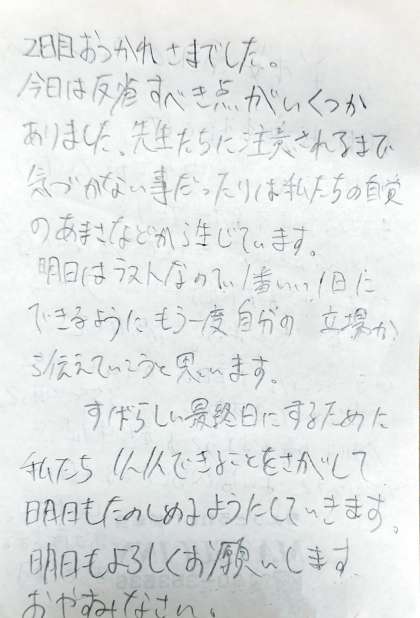 2日目おつかれさまでした。
今日は反省すべき点がいくつか
ありました、先生たちに注意されるまで
気づかない事だったりは私たちの自覚
のあまさなどから生じています。
明日はラストなので、1番いい1日に
できるようにもう一度自分の 立場か
ら伝えていこうと思います。
すばらしい最終日にするために
私たち1人1人できることをさがして
明日もたのしめるようにしていきます。
明日もよろしくお願いします
おやすみなさい。